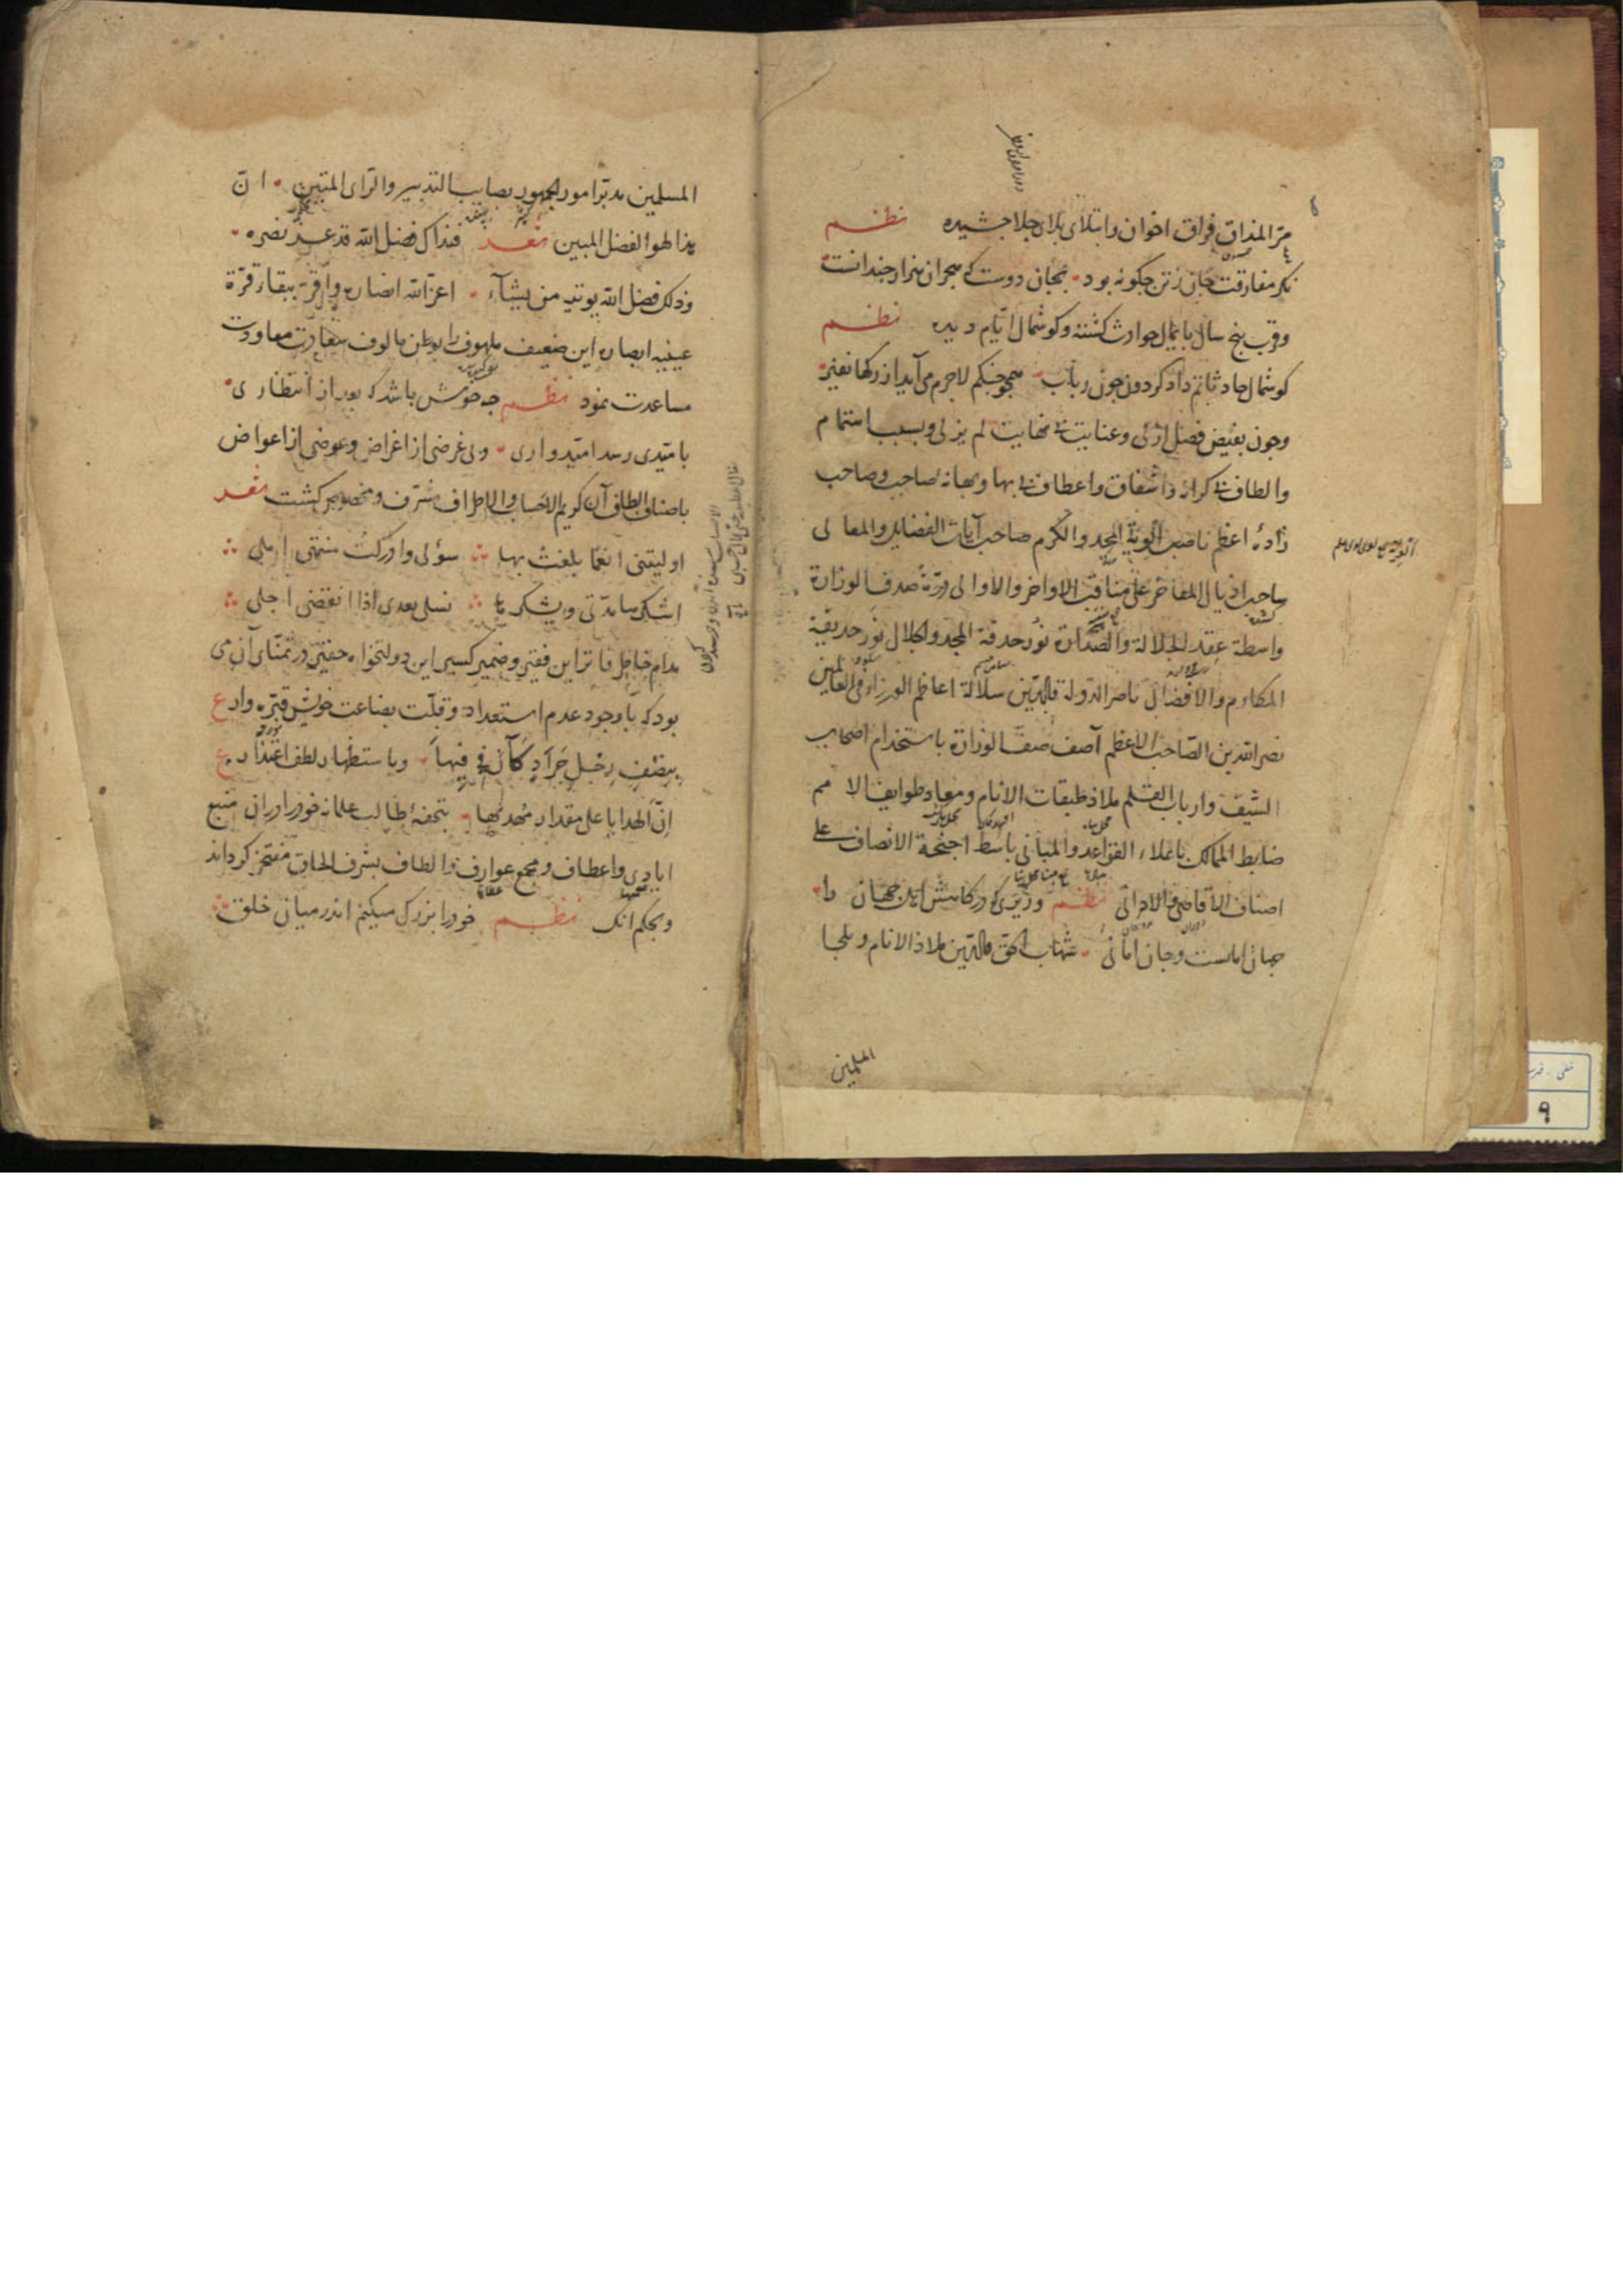 مرّ المذاق فراق اخوان وابتلای بلای جلا چشیده نظم
نکر مفارقت جان زتن چکونه بود بجان دوست که هجران هزار چندانست
وقرب پنج سال پایمال حوادث کشته وکوشمال ایّام دیده نظم
کوشمال حادثاتم داد کردون چون رباب همچو چنکم لاجرم می آید از رکها نفیر
وچون بفیض فضل ازلی وعنایت بی نهایت لم یزلی وبسبب اهتمام
والطاف بی کرانه واشفاق واعطاف بی بها وبهانه صاحب وصاحب
زادهٔ اعظم ناصب الویة المجد والکرم صاحب آیات الفضایل والمعالی
ساحب اذیال المفاخر علی مناقب الاواخر والاوالی درّة صدف الوزارة
واسطة عقد الجلالة والصدارة نور حدقة المجد والجلال نور حدیقة
المکارم والافضال ناصر الدولة والدّین سلالة اعاظم الوزراء فی العالمین
نصر الله بن الصّاحب الاعظم آصف صفّ الوزارة باستخدام اصحاب
السّیف وارباب القلم ملاذ طبقات الانام ومعاد طوایف الامم
ضابط الممالک باعلاء القواعد والمبانی باسط اجنحة الانصاف علی
اصناف الاقاصی والادانی نظم وزیری که در کامش این جهان را
جهان امانست وجان امانی شهاب الحق والدّین ملاذ الانام وملجا
المسلمین
المسلمین مدبّر امور الجمهور بصایب التدبیر والرّای المتین انّ
هذا لهو الفضل المبین شعر فذاک فضل الله قد عزّ نصره
وذلک فضل الله یوتیه من یشآء اعزّ الله انصاره واقرّ ببقائه قرّة
عینیه ابصاره این ضعیف ملهوف را بوطن مالوف سعادت معاودت
مساعدت نمود نظم چه خوش باشد که بعد از انتظاری
بامیدی رسد امّیدواری وبی غرضی از اغراض وعوضی از اعواض
باصناف الطاف آن کریم الاحساب والاطراف مشرّف ومخصوص کشت شعر
اولیتنی انعما بلغت بها سؤلی وادرکت منتهی املی
اشکرها مدّتی ویشکرها نسلی بعدی اذا انقضی اجلی
مدام خاطر فاتر این فقیر وضمیر کسیر این دولتخواه حقیر در تمنّای آن می
بود که باوجود عدم استعداد وقلّت بضاعت خویش قبّره وار ع
بنصف رجل جراد کان فی فیها وباستظهار لطف اعتذار ع
انّ الهدایا علی مقدار مهدیها بتحفهٔ طالب علمانه خود را دران منبع
ایادی واعطاف ومجمع عوارف والطاف بشرف الحاق مفتخر کرداند
وبحکم آنک نظم خود را بزرک میکنم اندر میان خلق
۹